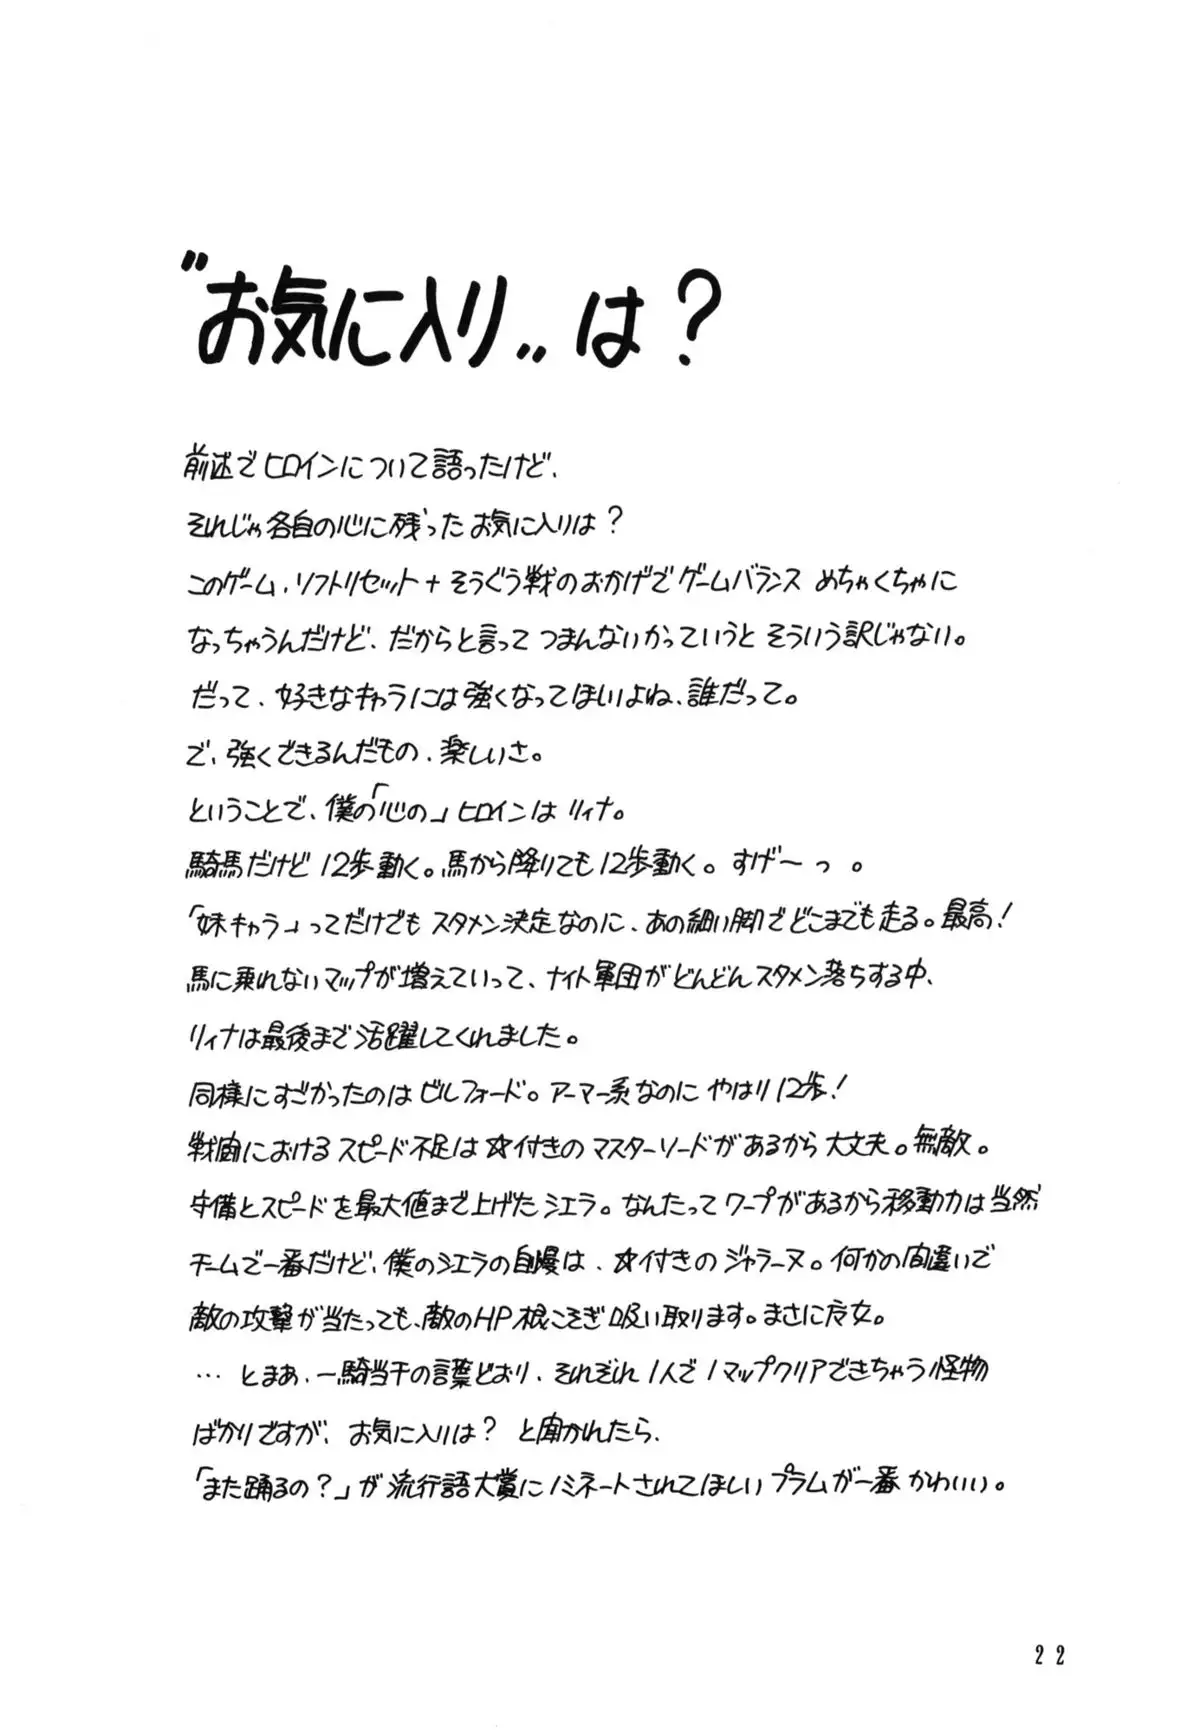 〝お気に入り〟は?
前述でヒロインについて語ったけど、
それじゃ各自の心に残ったお気に入りは?
このゲーム、ソフトリセット+そうぐう戦のおかげでゲームバランス めちゃくちゃに
なっちゃうんだけど、だからと言って つまんないかっていうと そういう訳じゃない。
だって、好きなキャラには強くなってほしいよね、誰だって。
で、強くできるんだもの、楽しいさ。
ということで、僕の「心の」ヒロインは リィナ。
騎馬だけど 12歩動く。馬から降りても12歩動く。すげ〜っ。
「妹キャラ」ってだけでも スタメン決定なのに、あの細い脚でどこまでも走る。最高!
馬に乗れないマップが増えていって、ナイト軍団がどんどんスタメン落ちする中、
リィナは最後まで活躍してくれました。
同様にすごかったのはビルフォード。アーマー系なのに やはり12歩!
戦闘におけるスピード不足は☆付きのマスターソードがあるから大丈夫。無敵。
守備とスピードを最大値まで上げたシエラ。なんたってワープがあるから移動力は当然
チームで一番だけど、僕のシエラの自慢は、☆付きのジャラーヌ。何かの間違いで
敵の攻撃が当たっても、敵のHP根こそぎ吸い取ります。まさに魔女。
…とまあ、一騎当千の言葉どおり、それぞれ1人で1マップクリアできちゃう怪物
ばかりですが、お気に入りは? と聞かれたら、
「また踊るの?」が流行語大賞にノミネートされてほしいプラムが一番かわいい。
22